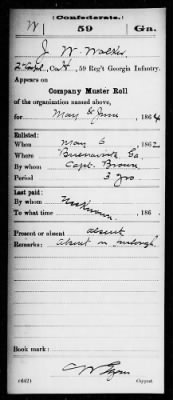 (Confederate.)
W 59 Ga.
J. W. Walker
Co. H, 59 Reg't Georgia Infantry.
Appears on
Company Muster Roll
of the organization named above,
for May & June, 1864
Enlisted:
When May 6, 1862
Where Buena Vista Ga.
By whom Capt. Brown
Period 3 yrs
Last paid:
By whom
To what time , 186 .
Present or absent absent
Remarks: Absent on furlough
Book mark:
(642) Copyist.